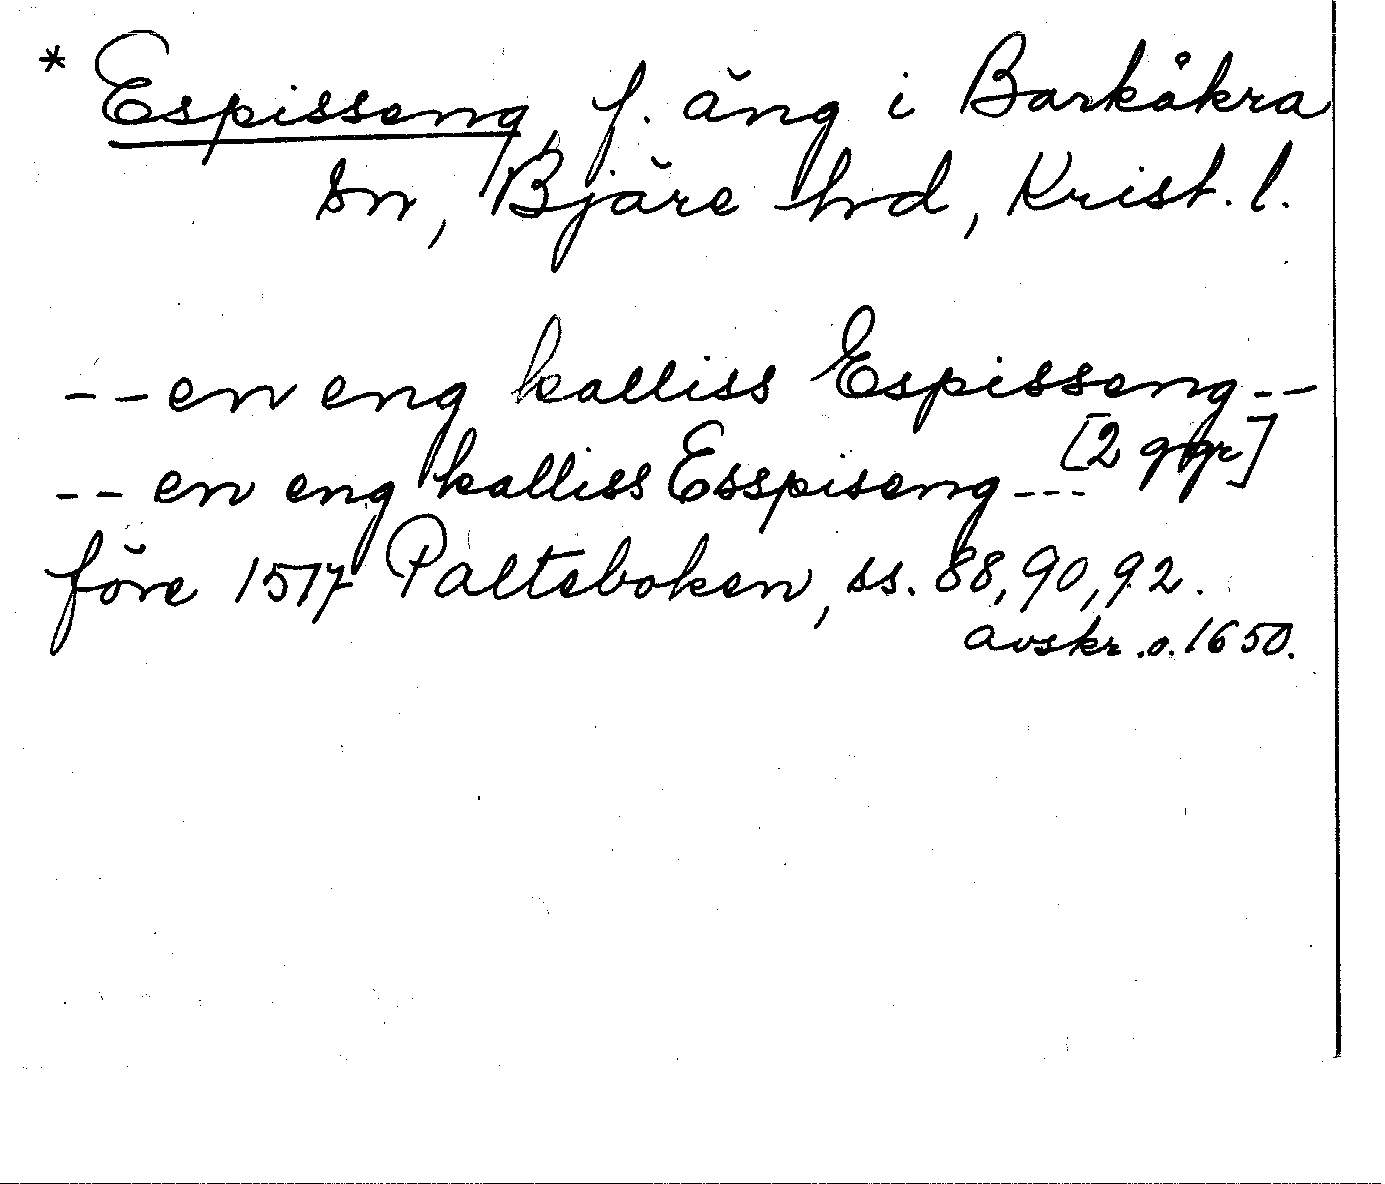 * Espisseng, f. äng i Barkåkra
sn, Bjäre hd, Krist. l.
-- en eng kalliss Espisseng --
[2 ggr]
-- en eng kalliss Esspiseng ---
före 1517 Palteboken, ss. 88, 90, 92.
avskr. o. 1650.